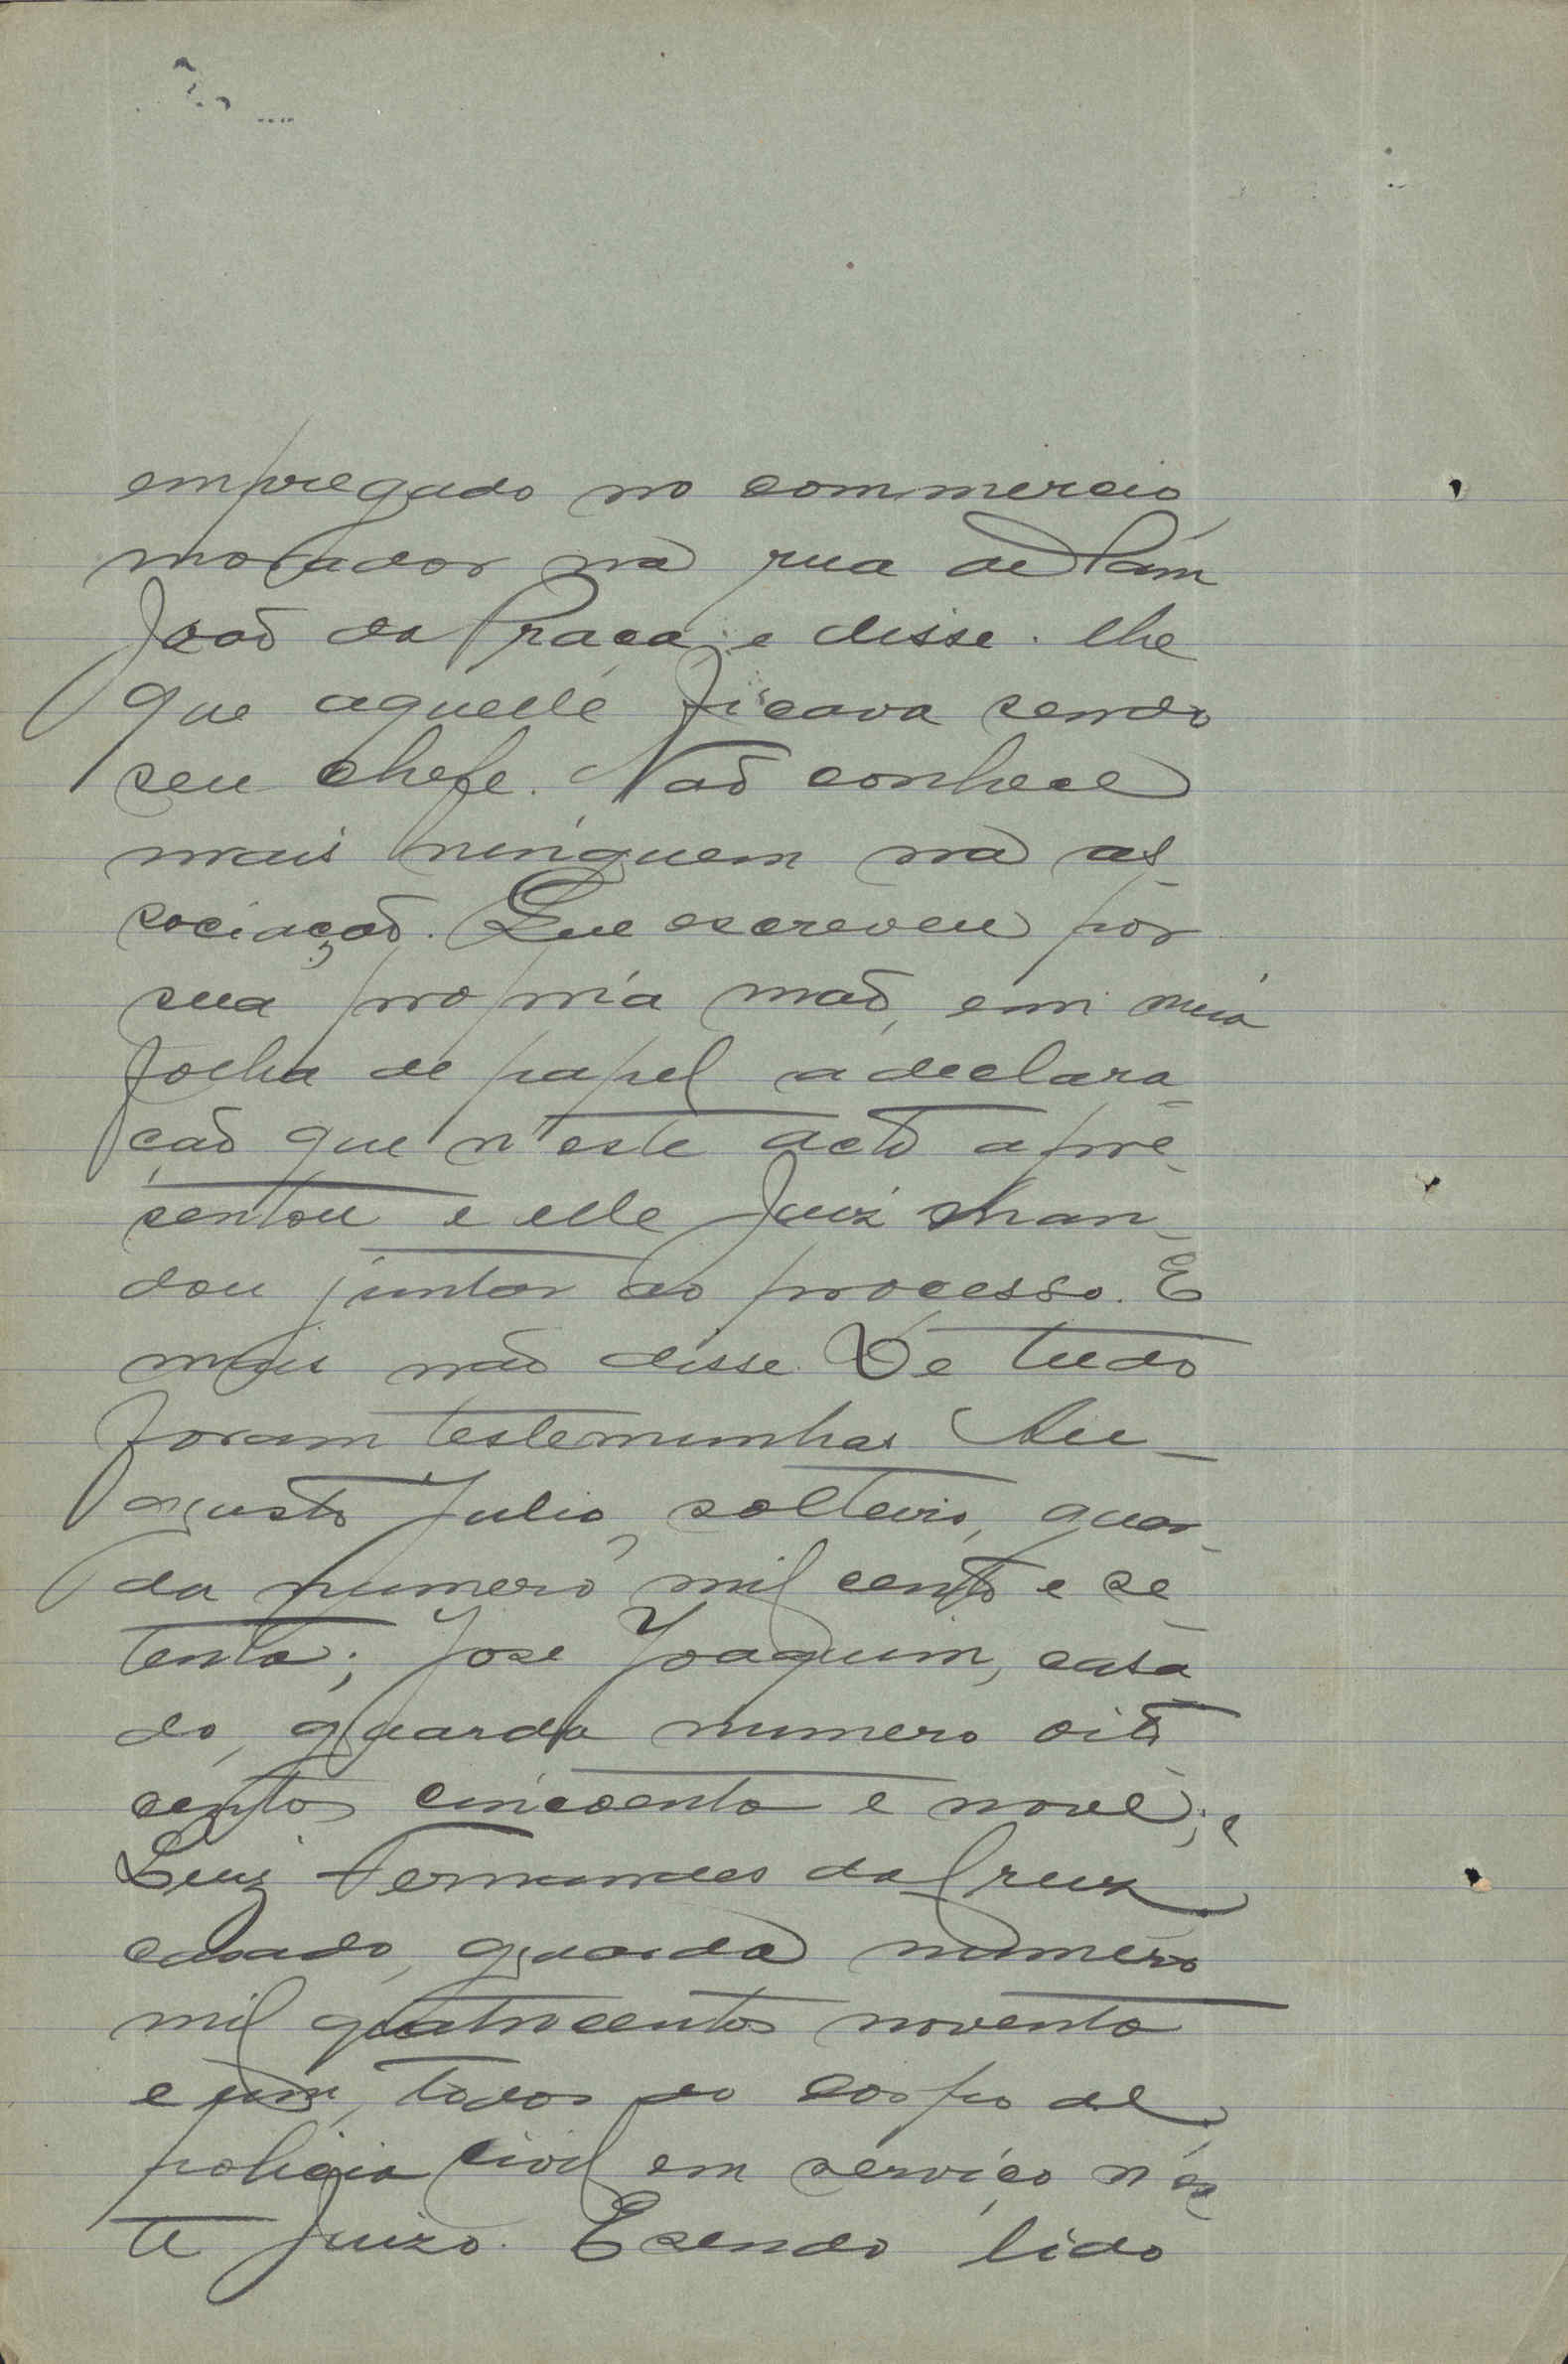 empregado no commercio
morador na rua de Sam
João da Praça e disse-lhe
que aquelle ficava sendo
seu chefe. Não conhece
mais ninguem na as-
sociação. Que escreveu por
sua propria mão, em meia
folha de papel a declara-
ção que n'este acto apre-
sentou e elle Juiz man-
dou juntar ao processo. E
mais não disse. De tudo
foram testemunhas Au-
gusto Julio, solteiro, guar-
da numero mil cento e se-
tenta; José Joaquim, casa-
do, guarda numero oito
centos cincoenta e nove; e
Luiz Fernandes da Cruz
casado, guarda numero
mil quatrocentos noventa
e um, todos do corpo de
policia civil em serviço n'es-
te Juizo. E sendo lido